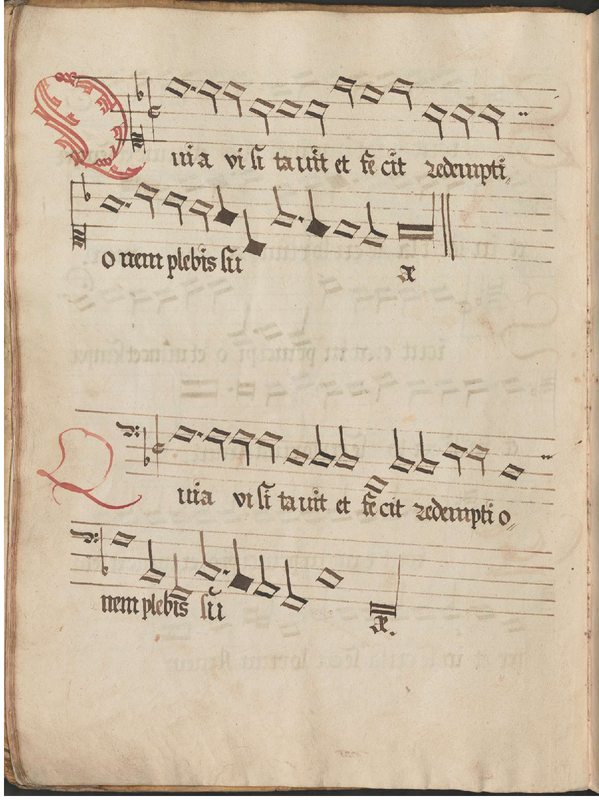 Quia visitauit et fecit redempti
onem plebis sue
Quia visitauit et fecit redemptio
nem plebis sue.